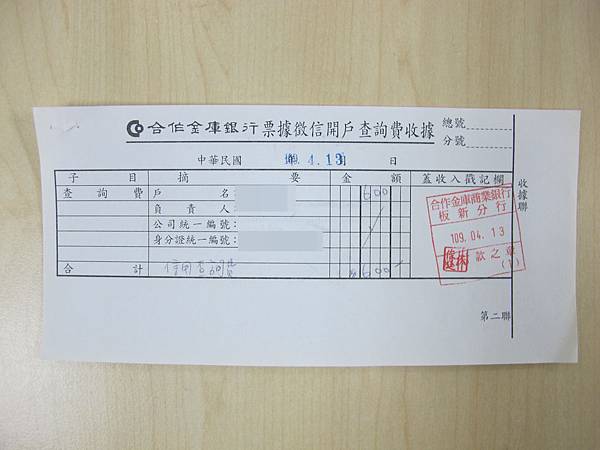 合作金庫銀行票據徵信開戶查詢費收據
總號
分號
中華民國 109. 4. 13 日
子目 摘要 金額 蓋收入戳記欄
查詢費 戶名 600
負責人:
公司統一編號:
身分證統一編號:
合計 信用查詢費 600
合作金庫商業銀行
板新分行
109.04.13
款之章
(1)
收據聯
第二聯